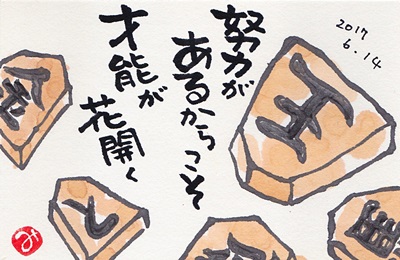 努力が
あるからこそ
才能が
花開く
2017
6.14
王
と
み